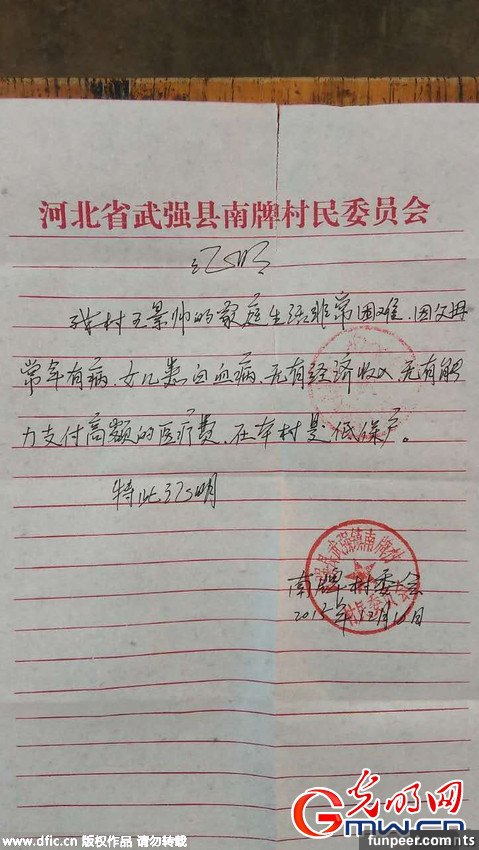 河北省武强县南牌村民委员会
证明
我村王景帅的家庭生活非常困难.因父母
常年有病.女儿患白血病.无有经济收入.无有能
力支付高额的医疗费.在本村是低保户。
特此证明
南牌村委会
2015年12月10日
光明网
GMW.CN
www.dfic.cn 版权作品 请勿转载
funpeer.com
nts